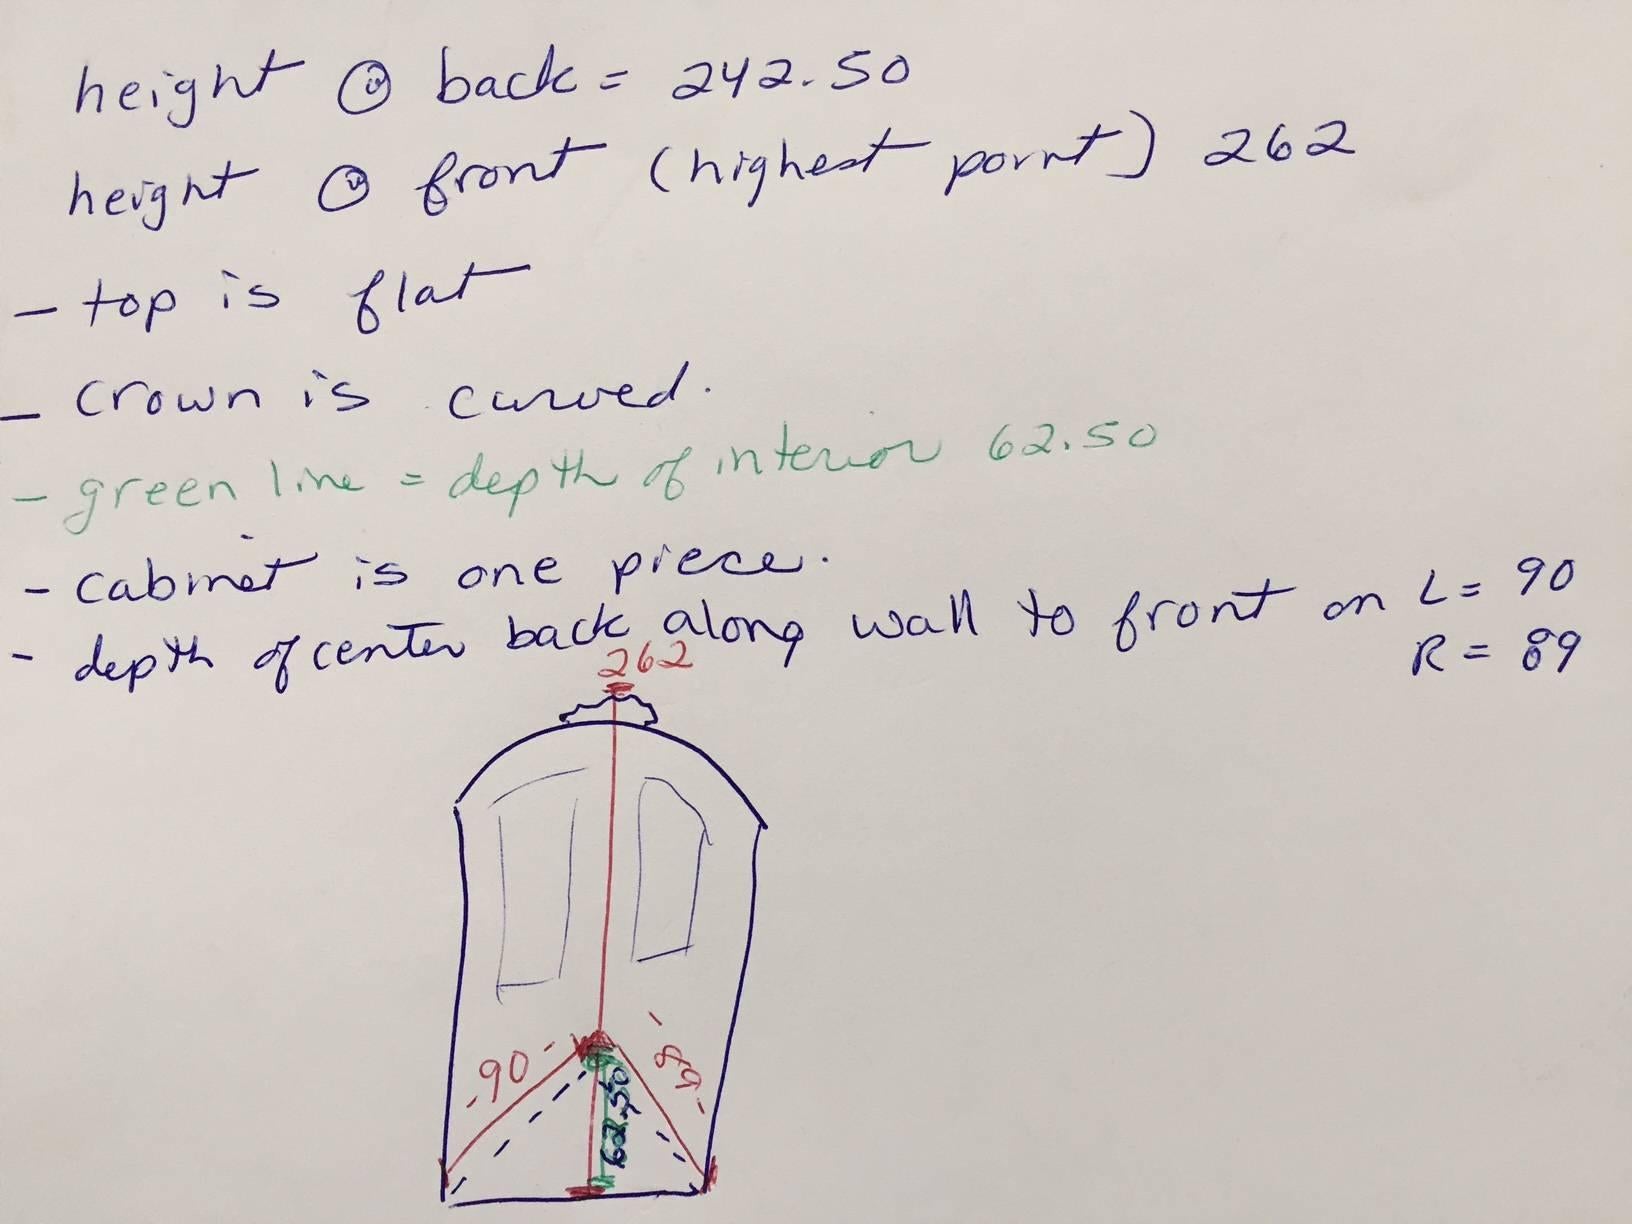 height @ back = 242.50
height @ front (highest point) 262
- top is flat
- crown is curved.
- green line = depth of interior 62.50
- cabinet is one piece.
- depth of center back along wall to front on L = 90
R = 89
262
- 90 -
- 89 -
62.50